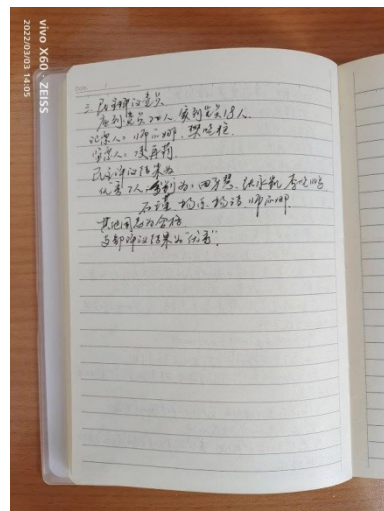 vivo X60 · ZEISS
2022/03/03 14:05
三、民主评议党员
应到党员20人 实到党员18人
计票人：师亚娜、樊晓柱
监票人：
民主评议结果为
优秀7人，分别为：田、张永凯、李晓
石瑾、杨乐、杨洁、师亚娜
其他同志为合格
支部评议结果为“优秀”.